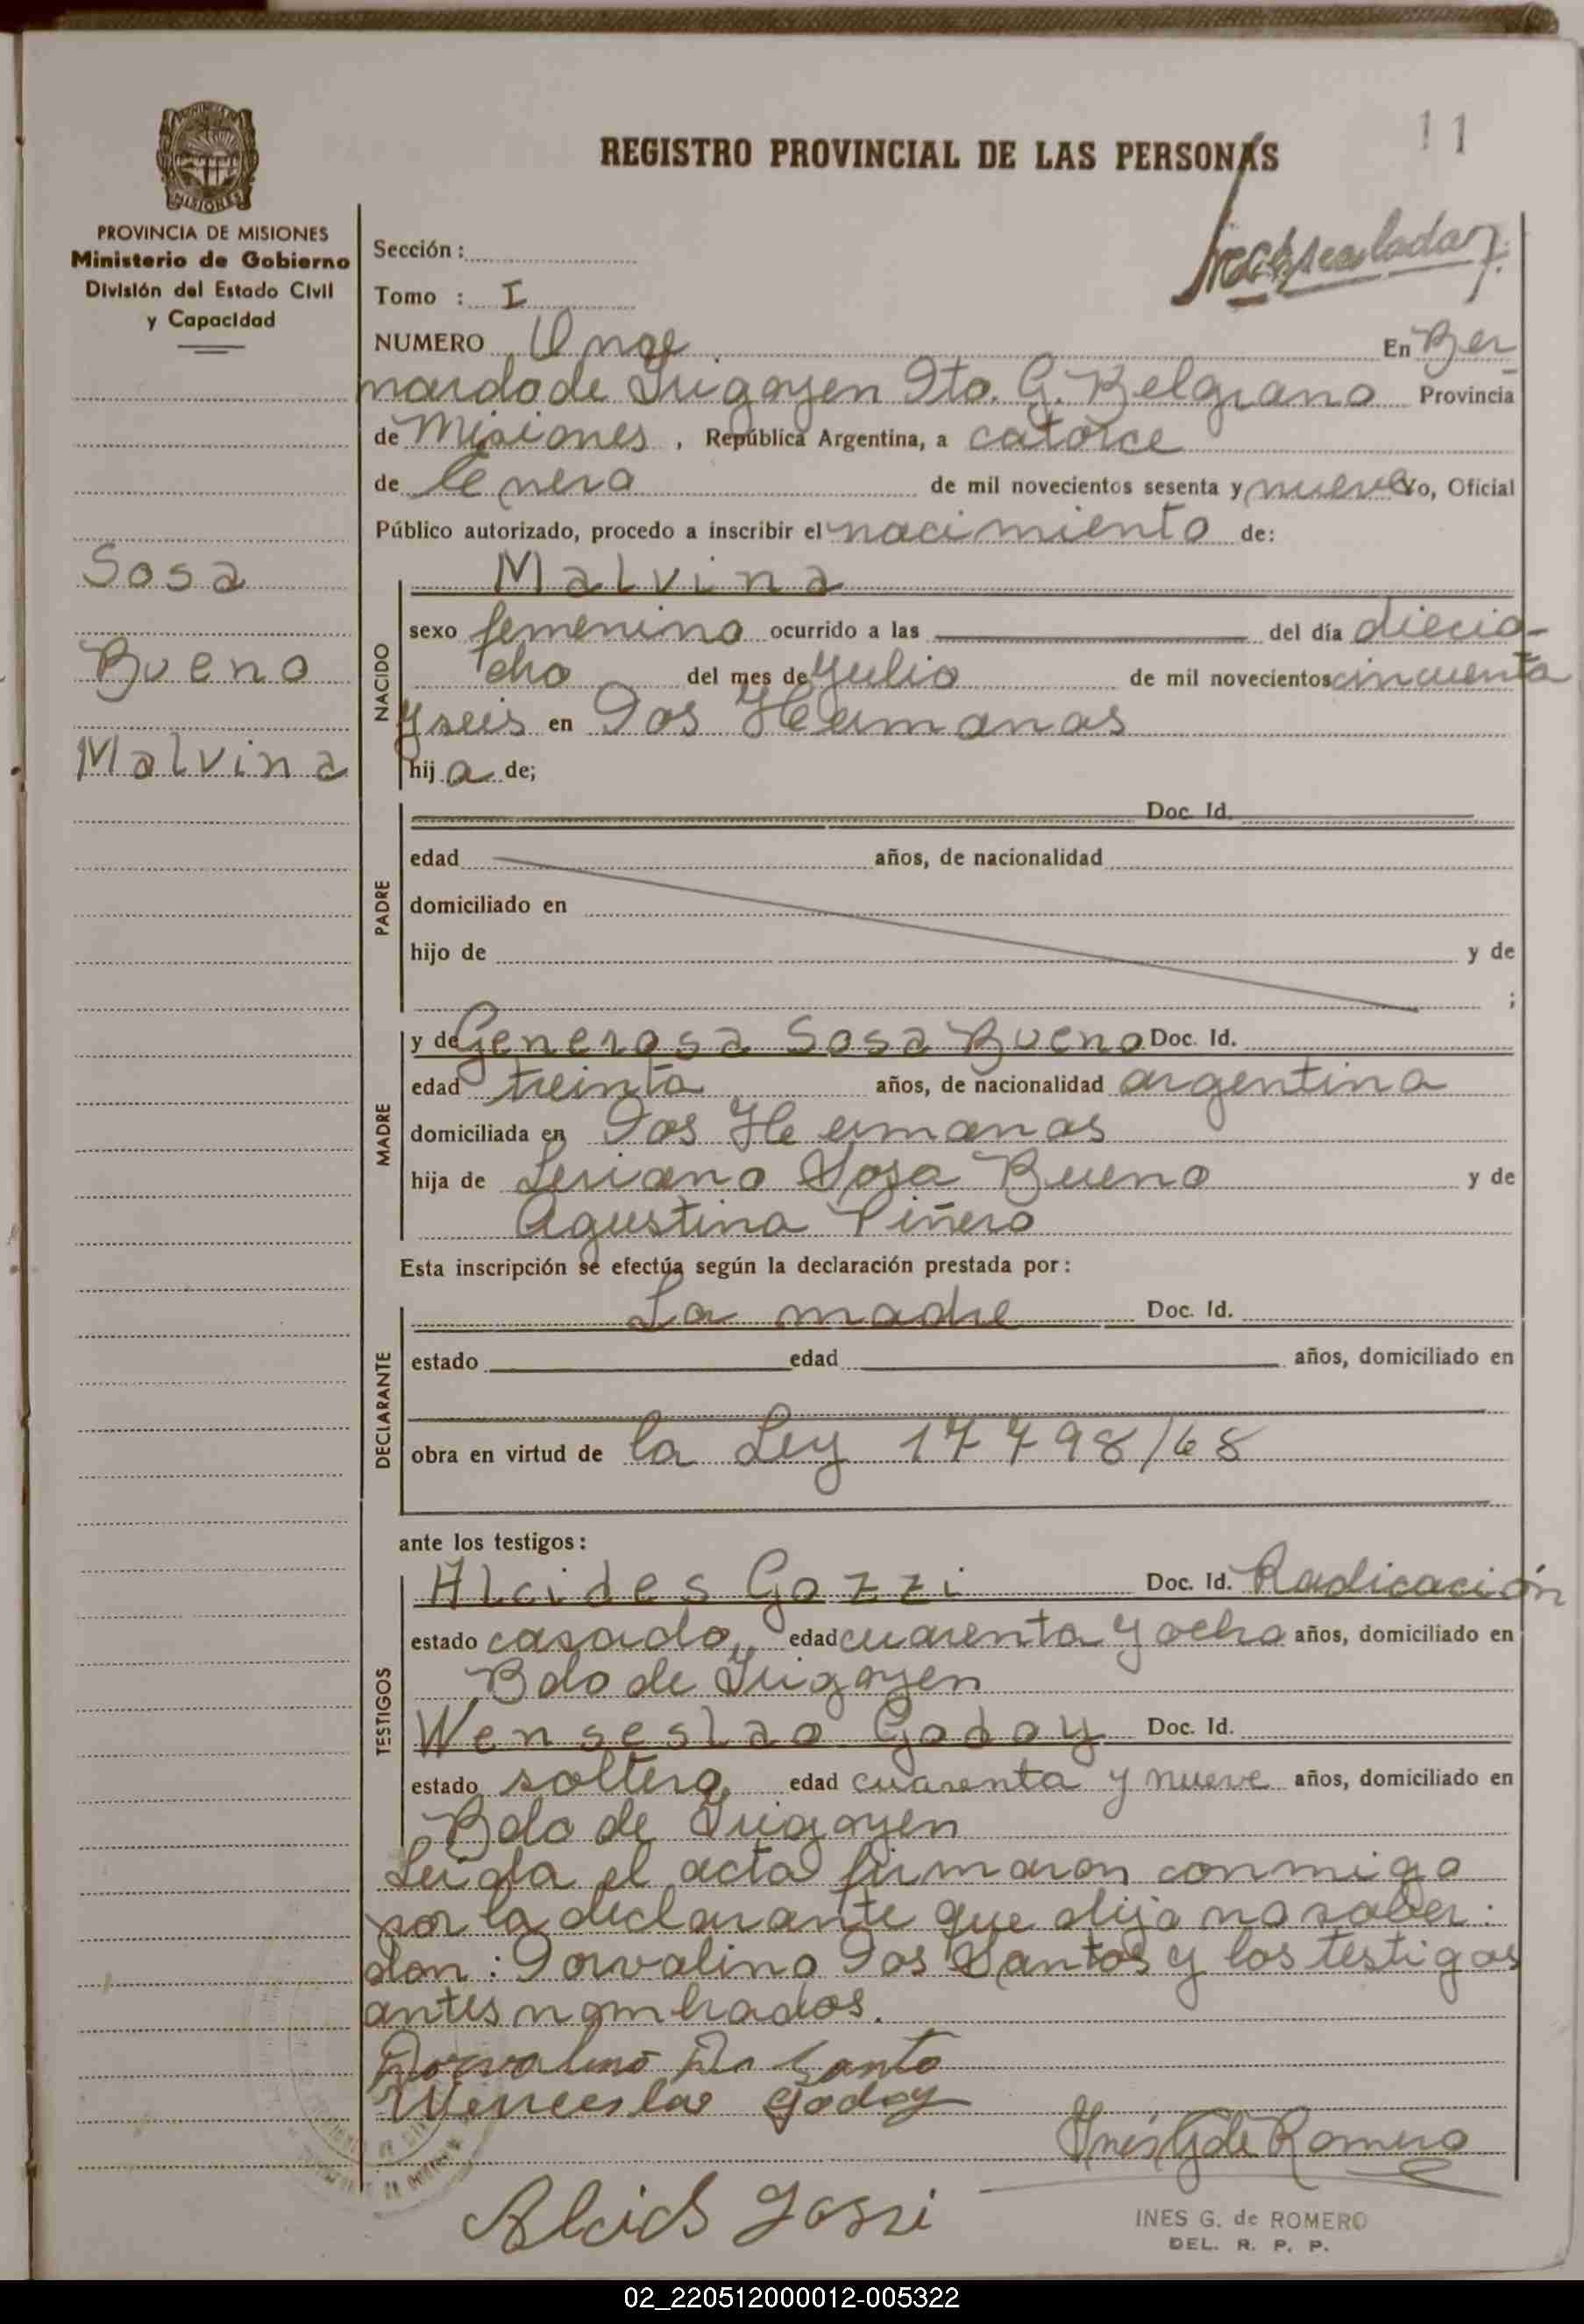 11
REGISTRO PROVINCIAL DE LAS PERSONAS
PROVINCIA DE MISIONES
Ministerio de Gobierno
División del Estado Civil
y Capacidad
Sosa
Bueno
Malvina
Sección:
Tomo : I
NUMERO Once. En Ber
nardo de Irigoyen Dto. G. Belgrano Provincia
de Misiones, República Argentina, a catorce
de Enero de mil novecientos sesenta y nueve Yo, Oficial
Público autorizado, procedo a inscribir el nacimiento de:
Malvina
NACIDO
sexo femenino ocurrido a las del día diecio-
cho del mes de Julio de mil novecientos cincuenta
y seis en Dos Hermanas
hija de;
PADRE
Doc. Id.
edad años, de nacionalidad
domiciliado en
hijo de y de
;
MADRE
y de Generosa Sosa Bueno Doc. Id.
edad treinta años, de nacionalidad argentina
domiciliada en Dos Hermanas
hija de Sosa Bueno y de
Agustina Piñero
Esta inscripción se efectúa según la declaración prestada por:
DECLARANTE
La madre Doc. Id.
estado edad años, domiciliado en
obra en virtud de la Ley 17798/68
ante los testigos:
TESTIGOS
Alcides Gozzi Doc. Id. Radicación
estado casado, edad cuarenta y ocho años, domiciliado en
Bdo de Irigoyen
Wenseslao Godoy Doc. Id.
estado soltero, edad cuarenta y nueve años, domiciliado en
Bdo de Irigoyen
Leida el acta firmaron conmigo
por la declarante que dijo no saber:
don: Dorvalino Dos Santos y los testigos
antes nombrados.
Dorvalino Do Santo
Wenceslao Godoy
Inés G de Romero
INES G. de ROMERO
DEL. R. P. P.
02_220512000012-005322